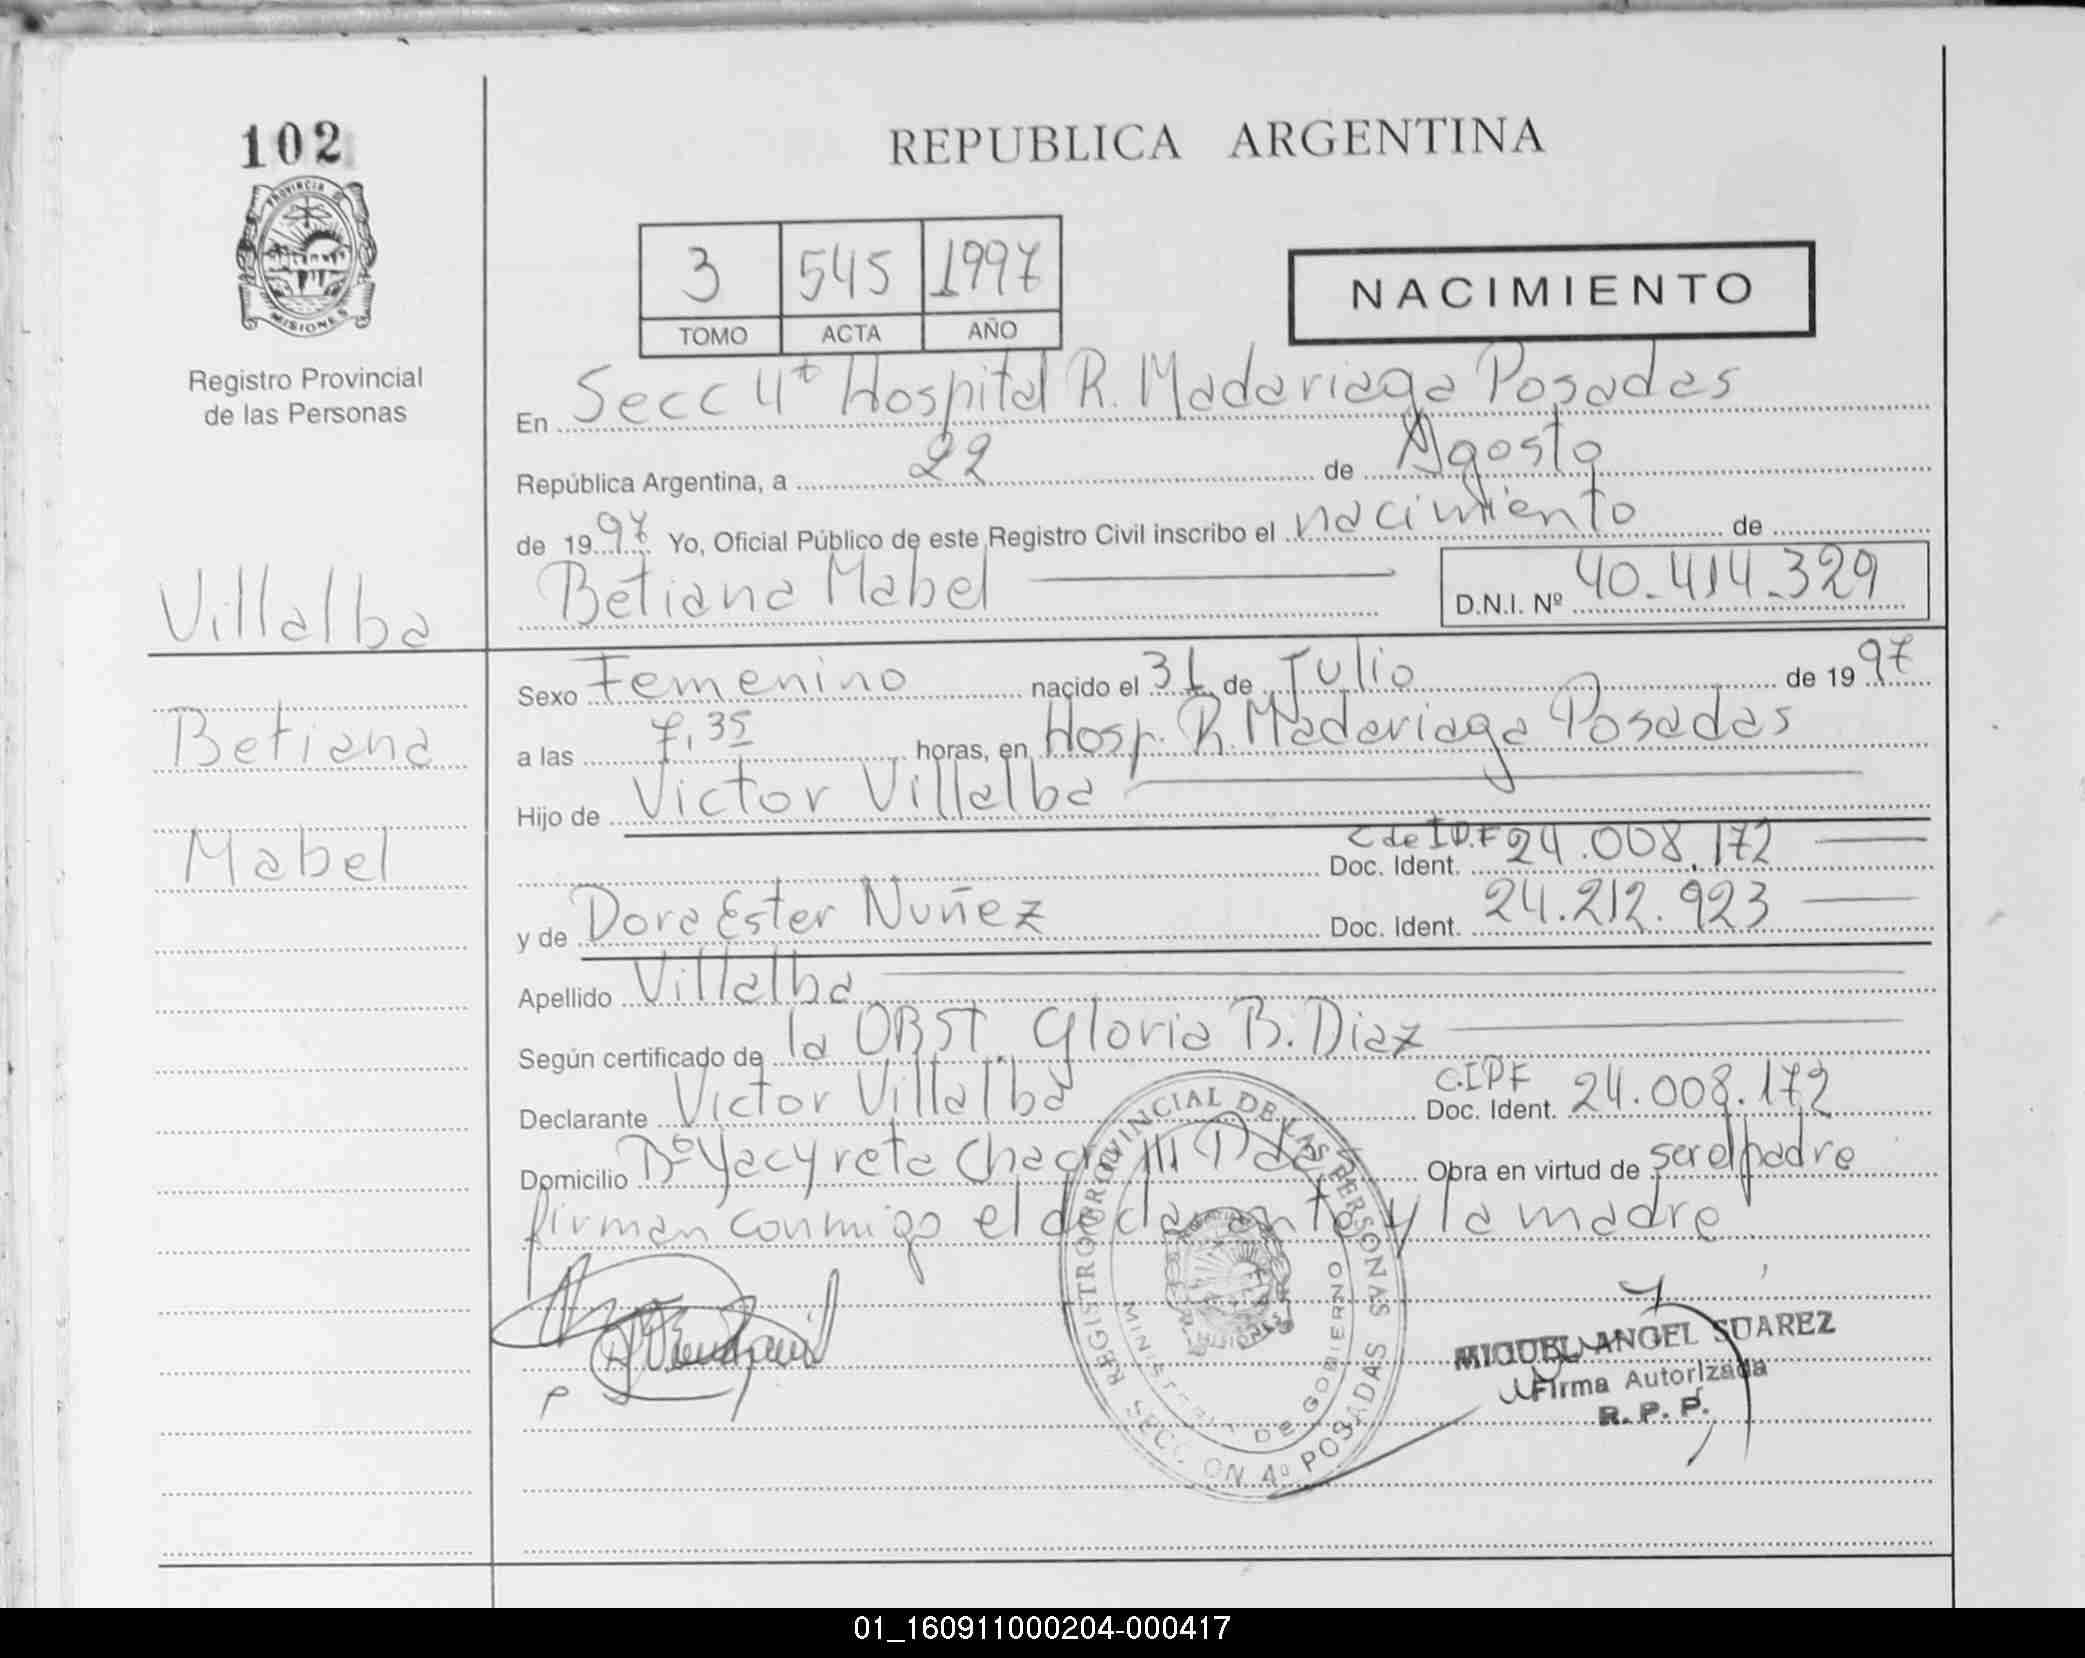 102
PROVINCIA DE
MISIONES
Registro Provincial
de las Personas
REPUBLICA ARGENTINA
3 545 1997
TOMO ACTA AÑO
NACIMIENTO
En Secc 4ª Hospital R. Madariaga Posadas
República Argentina, a 22 de Agosto
de 1997 Yo, Oficial Público de este Registro Civil inscribo el nacimiento de
Betiana Mabel D.N.I. Nº 40.414.329
Villalba
Betiana
Mabel
Sexo Femenino nacido el 31 de Julio de 1997
a las 7,35 horas, en Hosp. R. Madariaga Posadas
Hijo de Victor Villalba
C de ID.F
Doc. Ident. 24.008.172
y de Dora Ester Nuñez Doc. Ident. 24.212.923
Apellido Villalba
Según certificado de la OBST. Gloria B. Diaz
Declarante Victor Villalba C.IPF Doc. Ident. 24.008.172
Domicilio Bº Yacyreta Chac Obra en virtud de ser el padre
firman conmigo el declarante y la madre
REGISTRO PROVINCIAL DE LAS PERSONAS
DE GOBIERNO
SECCION 4º POSADAS
MISIONES
MIGUEL ANGEL SUAREZ
Firma Autorizada
R. P. P.
01_160911000204-000417